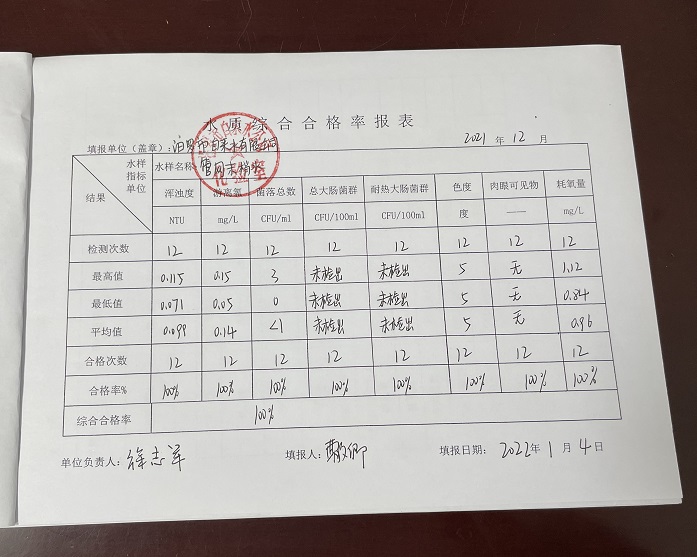 水质综合合格率报表
填报单位（盖章）：汨罗市自来水有限公司 2021年12月
水样 指标 单位 结果 水样名称：管网末梢水
浑浊度 游离氯 菌落总数 总大肠菌群 耐热大肠菌群 色度 肉眼可见物 耗氧量
NTU mg/L CFU/ml CFU/100ml CFU/100ml 度 —— mg/L
检测次数 12 12 12 12 12 12 12 12
最高值 0.115 0.15 3 未检出 未检出 5 无 1.12
最低值 0.071 0.05 0 未检出 未检出 5 无 0.84
平均值 0.099 0.14 <1 未检出 未检出 5 无 0.96
合格次数 12 12 12 12 12 12 12 12
合格率% 100% 100% 100% 100% 100% 100% 100% 100%
综合合格率 100%
单位负责人：徐志军 填报人： 填报日期：2022年1月4日